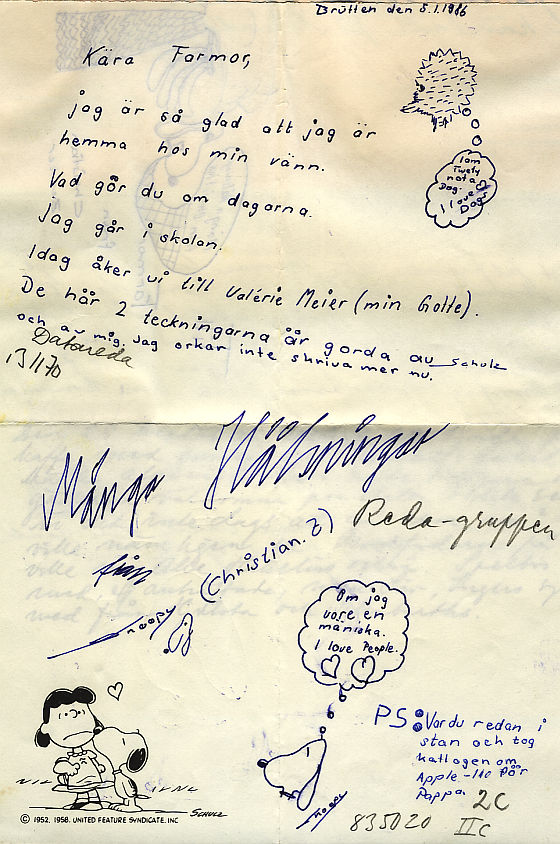 Brütten den 5.1.1986
Kära Farmor,
jag är så glad att jag är
hemma hos min vänn.
Vad gör du om dagarna.
Jag går i skolan.
Idag åker vi till Valérie Meier (min Gotte).
De här 2 teckningarna är gorda av Schulz
och av mig. Jag orkar inte skriva mer nu.
Datareda
I am
Twety
not a
Dog.
I love
Dogs
Många Hälsningar
från (Christian.Z)
Reda-gruppen
Snoopy
Om jag
vore en
mäniska.
I love People.
PS: Var du redan i
stan och tog
kattlogen om
Apple-IIc för
Pappa.
2C
IIc
835020
Snoopy
© 1952, 1958. UNITED FEATURE SYNDICATE, INC
SCHULZ